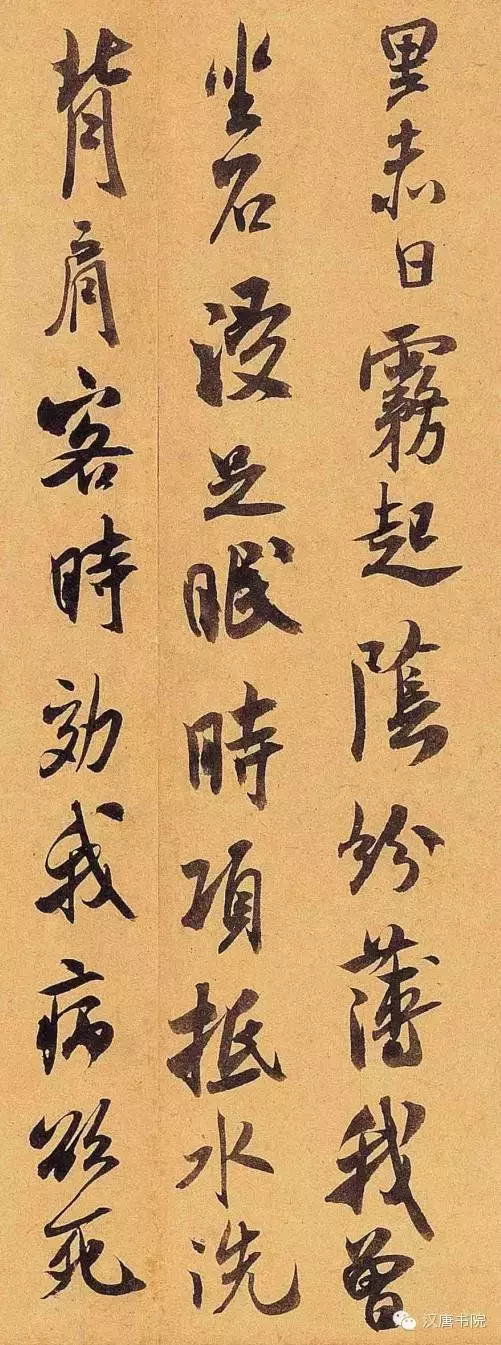 里赤日霧起陰紛薄我曾
坐石浸足眠時項抵水洗
背肩客時効我病欲死
汉唐书院